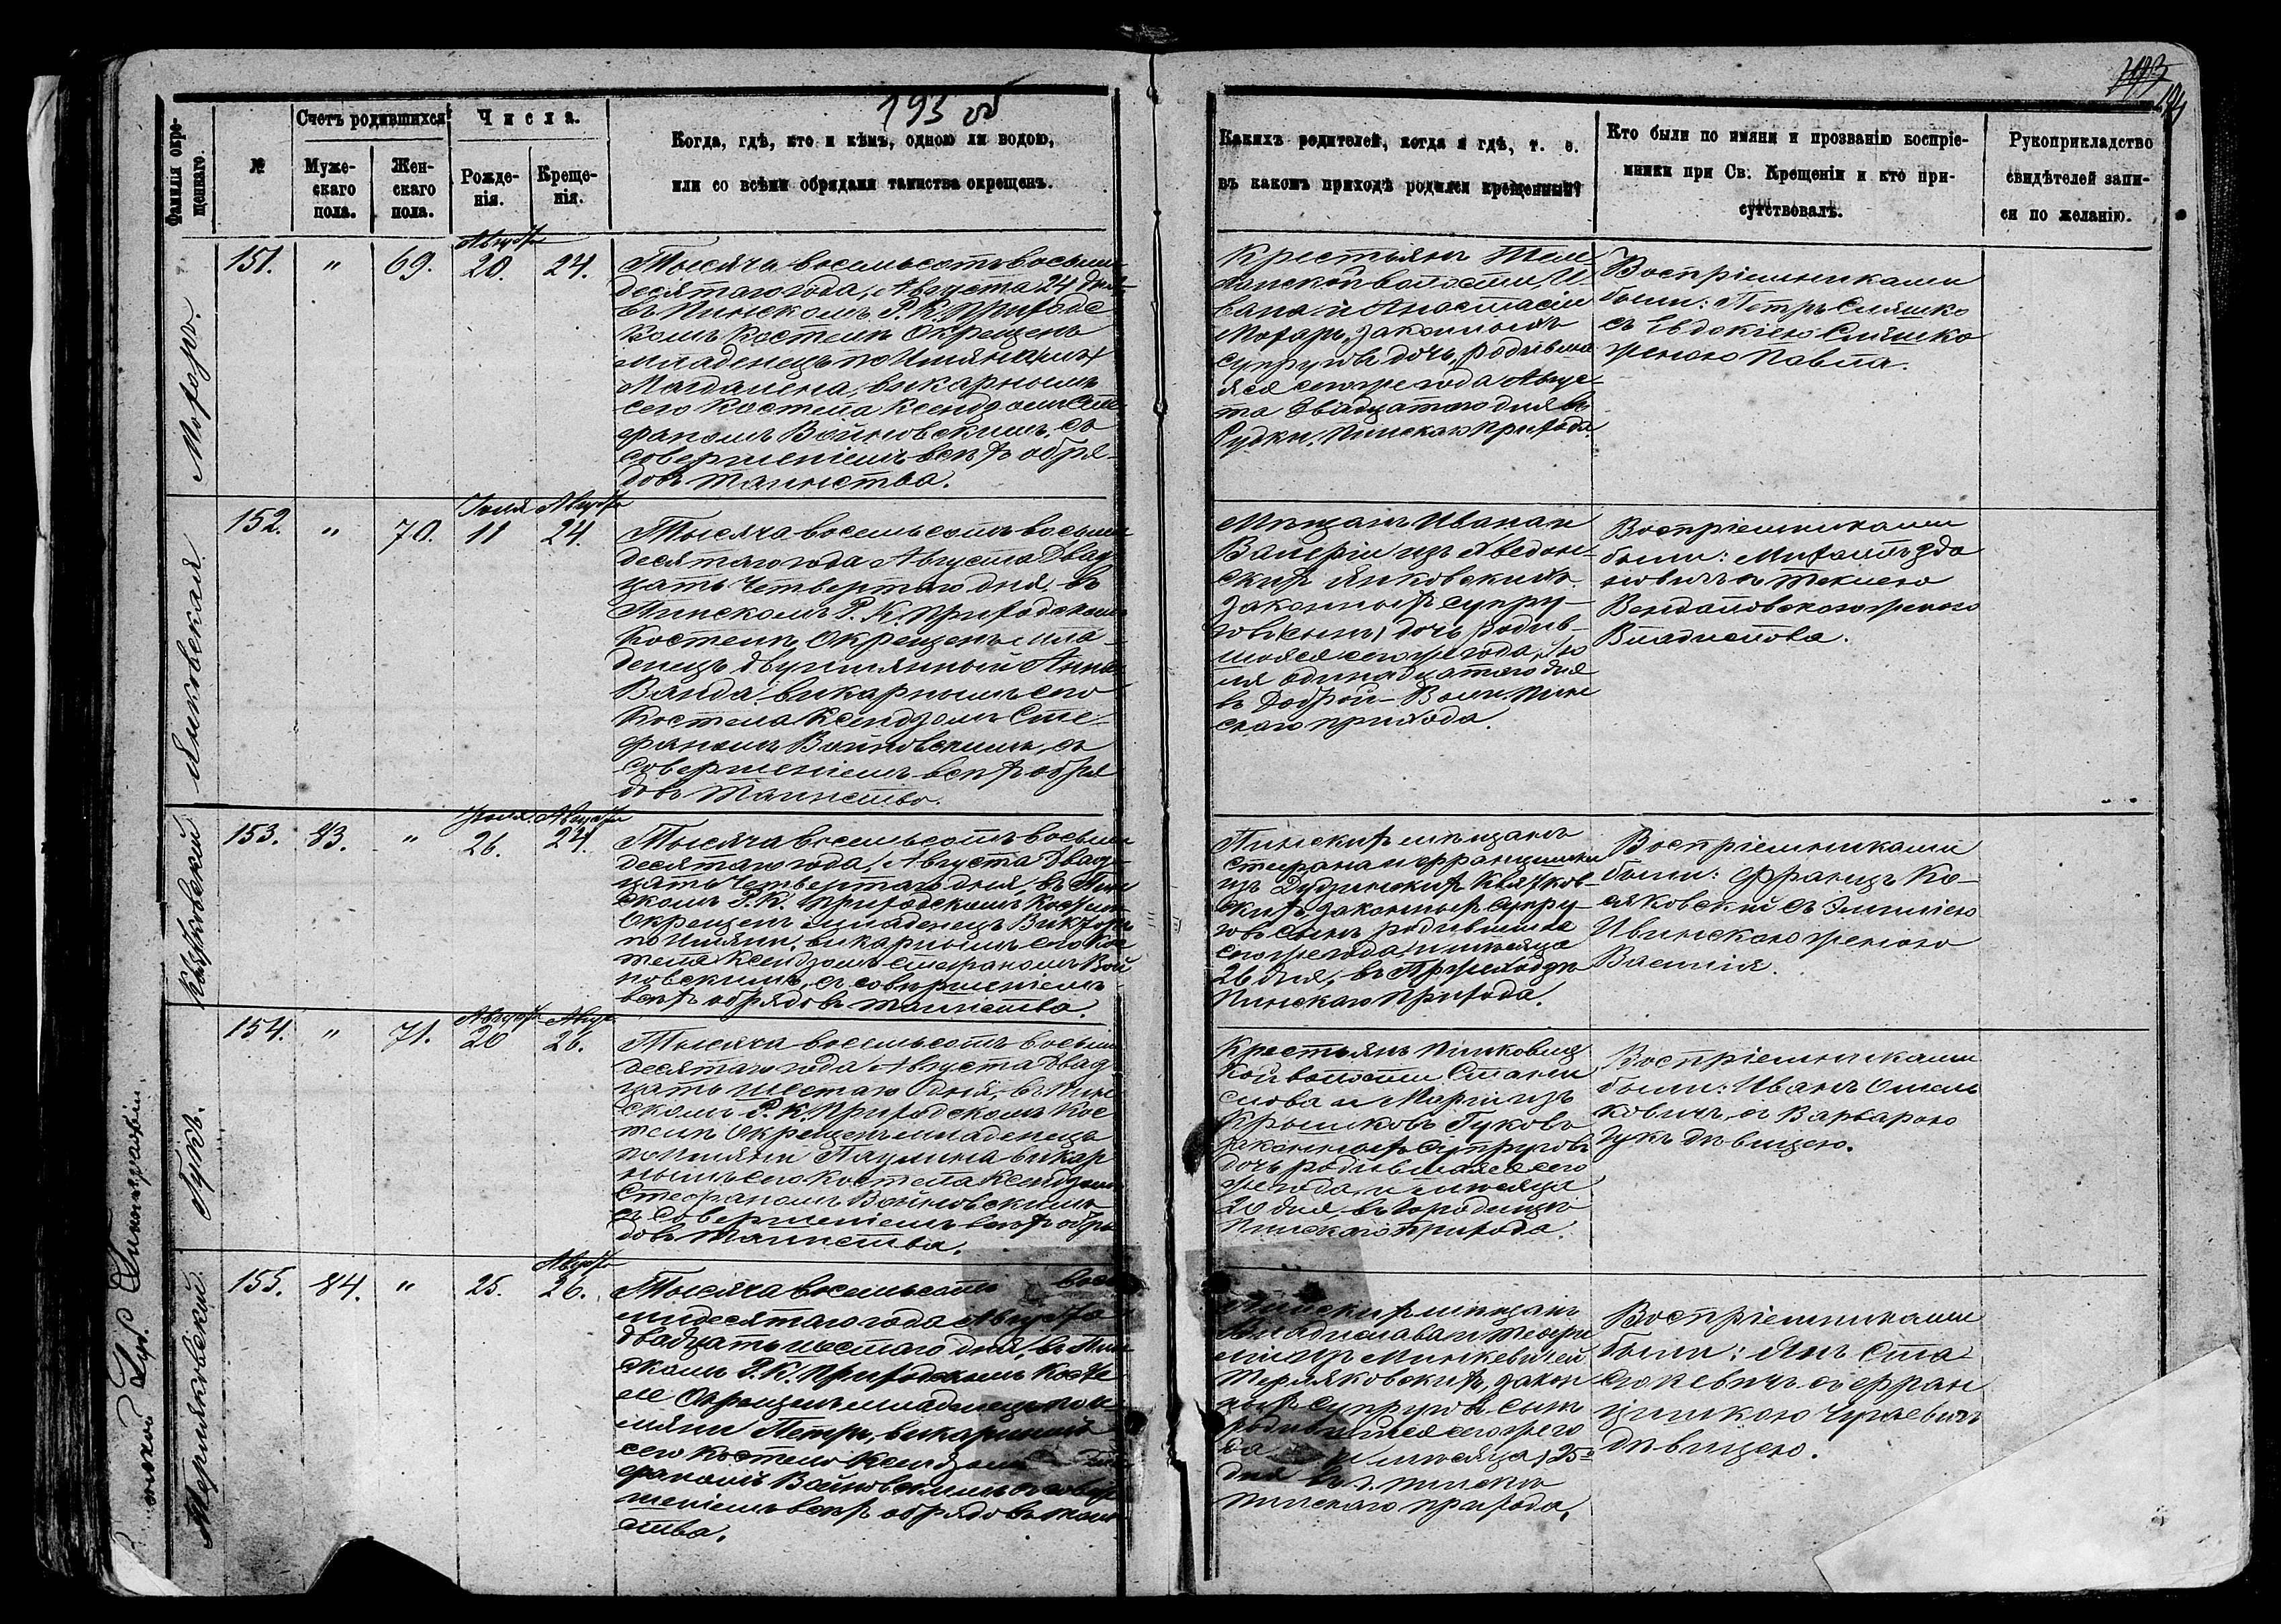 193 об
193
194
Фамилія окре-
щеннаго.
№
Счетъ родившихся
Муже-
скаго
пола.
Жен-
скаго
пола.
Числа.
Рожде-
нія.
Креще-
нія.
Когда, гдѣ, кто и кѣмъ, одною ли водою,
или со всѣми обрядами таинства окрещенъ.
Какихъ родителей, когда и гдѣ, т. е.
въ какомъ приходѣ родился крещенный?
Кто были по имяни и прозванію воспріе-
мники при Св. Крещеніи и кто при-
сутствовалъ.
Рукоприкладство
свидѣтелей запи-
си по желанію.
Мохаръ.
151.
"
69.
Августа
20.
24.
Тысяча восемьсотъ восьми-
десятаго года, Августа 24 дня
въ Пинскомъ Р. К. Приходс
комъ Костелѣ Окрещенъ
младенецъ по Имяни
Магдалена, викарнымъ
сего Костела Ксендзомъ Сте
фаномъ Войновскимъ, съ
совершеніемъ всѣхъ обря-
довъ таинства.
Крестьянъ
волости, И-
вана и Анастасіи
Мохаръ, законныхъ
супруговъ дочь, родивша
яся сего же года Авгус-
та двадцатого дня въ
Рудки, Пинскаго Прихода.
Воспріемниками
были: Петръ
съ Евдокіею
женою Павла.
Янковская
152.
"
70.
Іюля
11
Августа
24.
Тысяча восемьсотъ восьми
десятаго года Августа Двад-
цать Четвертаго дня въ
Пинскомъ Р. К. приходскомъ
Костелѣ, Окрещенъ мла-
денецъ двуимянный Анна
Ванда, викарнымъ сего
Костела Ксендзомъ Сте-
фаномъ Войновскимъ, съ
совершеніемъ всѣхъ обря
довъ таинства.
Мѣщанъ Ивана и
Валеріи изъ
скихъ Янковскихъ
законныхъ супру-
говъ дочь родив-
шаяся сего же года, Ію
ля одинадцатаго дня
въ Доброй-Волѣ Пин
скаго прихода.
Воспріемниками
были: Михаилъ Зда
новичъ съ Теклею
женою
Владислава.
Квятковскій
153.
83.
"
Іюля.
26.
Августа
24.
Тысяча восемьсотъ восьми
десятаго года, Августа Двад-
цать Четвертаго дня, въ Пин
скомъ Р. К. Приходскомъ Костелѣ
Окрещенъ младенецъ Викторъ
по Имяни, викарнымъ сего Кос
тела Ксендзомъ Стефаномъ Вой
новскимъ, съ совершеніемъ
всѣхъ обрядовъ таинства.
Пинскихъ мѣщанъ
Стефана и Францишки
изъ Дудзинскихъ Квятков-
скихъ, законныхъ супру-
говъ сынъ родившійся
сего же года, и мѣсяца
26 дня, въ
Пинскаго Прихода.
Воспріемниками
были: Францъ Ко-
сяковскій съ Эмиліею
Ивинскою женою
Василія.
Гукъ.
154.
"
71.
Августа
20
Авгус
26.
Тысяча восемьсотъ восьми
десятаго года Августа Двад
цать шестаго Дня, въ Пин
скомъ Р. К. Приходскомъ Кос
телѣ Окрещенъ младенецъ
по имяни Паулина викар
нымъ сего Костела Ксендзомъ
Стефаномъ Войновскимъ
съ совершеніемъ всѣхъ обря
довъ таинства.
Крестьянъ Пинковиц
кой волости Стани
слава и Маріи изъ
Крышиковъ Гуковъ
законныхъ супруговъ
дочь родившаяся сего
же года, и мѣсяца
20 дня въ Городищѣ
Пинскаго Прихода.
Воспріемниками
были: Иванъ Омель
ковичъ, съ Варварою
Гукъ дѣвицею.
Терляковскій
155.
84.
"
25.
Августа
26.
Тысяча восемьсотъ вось
мидесятаго года Августа
двадцать шестаго дня, въ Пин
скомъ Р. К. Приходскомъ Косте
лѣ Окрещенъ младенецъ по и-
мяни Петръ, викарнымъ
сего Костела Ксендзомъ Сте
фаномъ Войновскимъ съ совер
шеніемъ всѣхъ обрядовъ таин
ства.
Пинскихъ мѣщанъ
Владислава и Теофи
ліи изъ Минкевичей
Терляковскихъ, закон
ныхъ супруговъ сынъ
родившійся сего же го
да и мѣсяца, 25
дня въ г. Пинскѣ
Пинскаго прихода.
Воспріемниками
были: Янъ Ста
съ Фран
цишкою
дѣвицею.